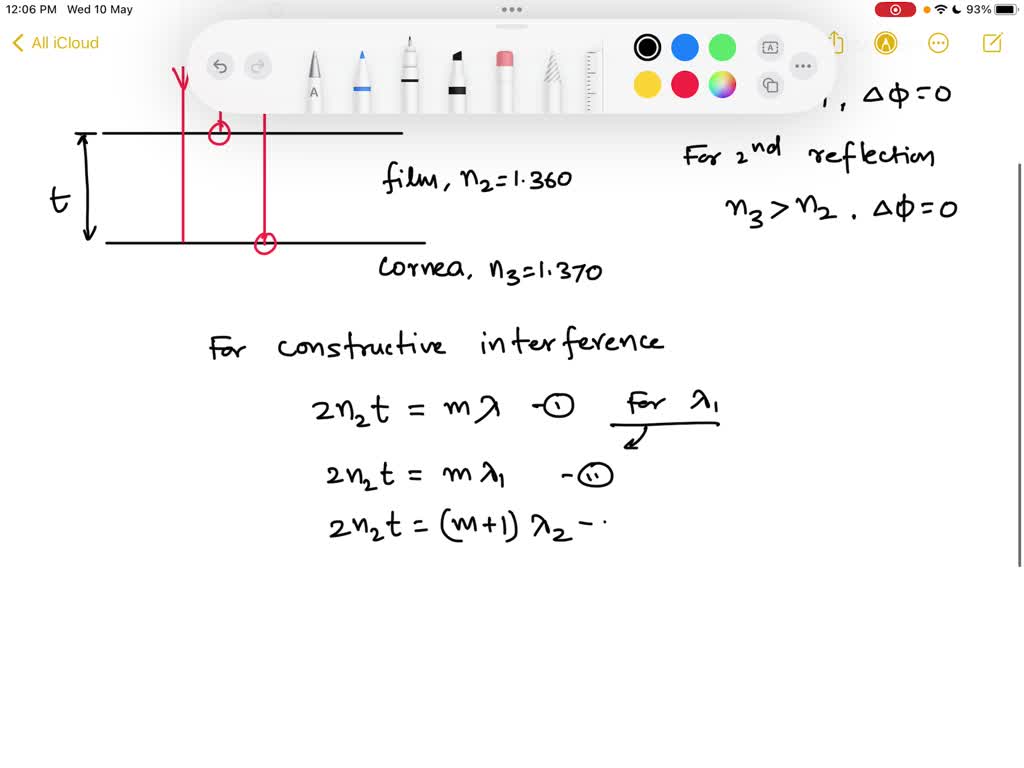 12:06 PM Wed 10 May
93%
All iCloud
A
A
, Δϕ=0
t
film, n₂=1.360
For 2nd reflection
n₃>n₂. Δϕ=0
Cornea, n₃=1.370
For constructive interference
2n₂t = mλ -①
For λ₁
2n₂t = mλ₁ -⑪
2n₂t = (m+1) λ₂ -